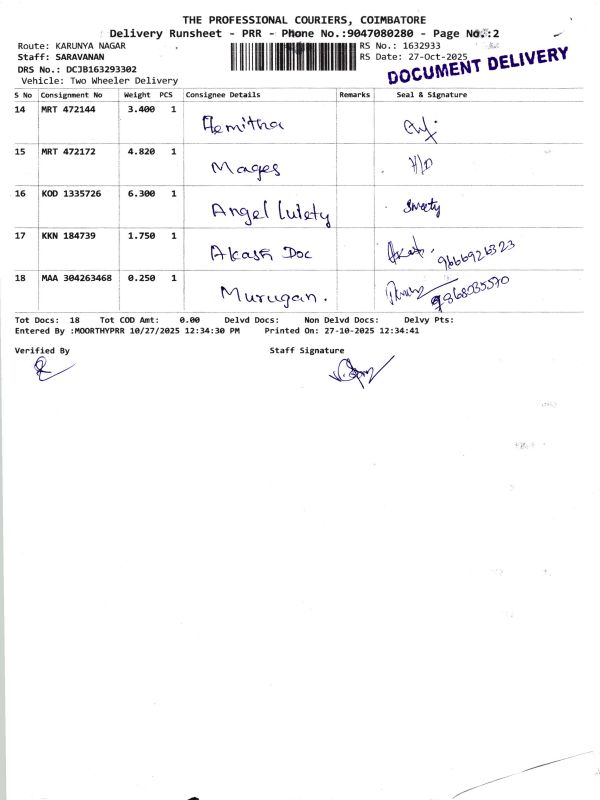 THE PROFESSIONAL COURIERS, COIMBATORE
Delivery Runsheet - PRR - Phone No.:9047080280 - Page No.:2
Route: KARUNYA NAGAR RS No.: 1632933
Staff: SARAVANAN RS Date: 27-Oct-2025
DOCUMENT DELIVERY
DRS No.: DCJB163293302
Vehicle: Two Wheeler Delivery
S No Consignment No Weight PCS Consignee Details Remarks Seal & Signature
14 MRT 472144 3.400 1 Hemitha
15 MRT 472172 4.820 1 Mages H/D
16 KOD 1335726 6.300 1 Angel
17 KKN 184739 1.750 1 Akash Doc 9666926323
18 MAA 304263468 0.250 1 Murugan. 9368035570
Tot Docs: 18 Tot COD Amt: 0.00 Delvd Docs: Non Delvd Docs: Delvy Pts:
Entered By :MOORTHYPRR 10/27/2025 12:34:30 PM Printed On: 27-10-2025 12:34:41
Verified By Staff Signature